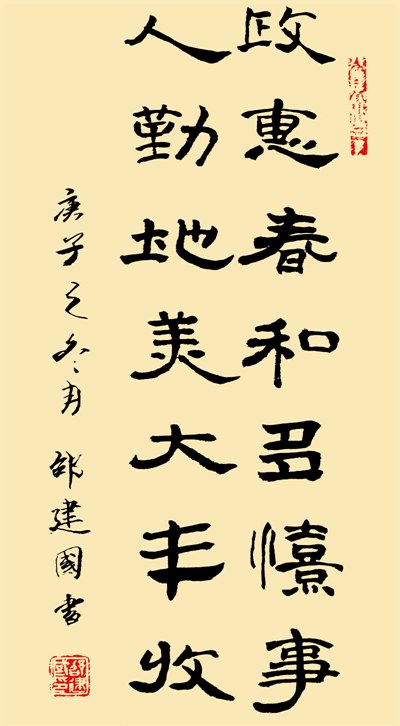 政惠春和多憘事
人勤地美大丰收
庚子之冬月 邵建國書